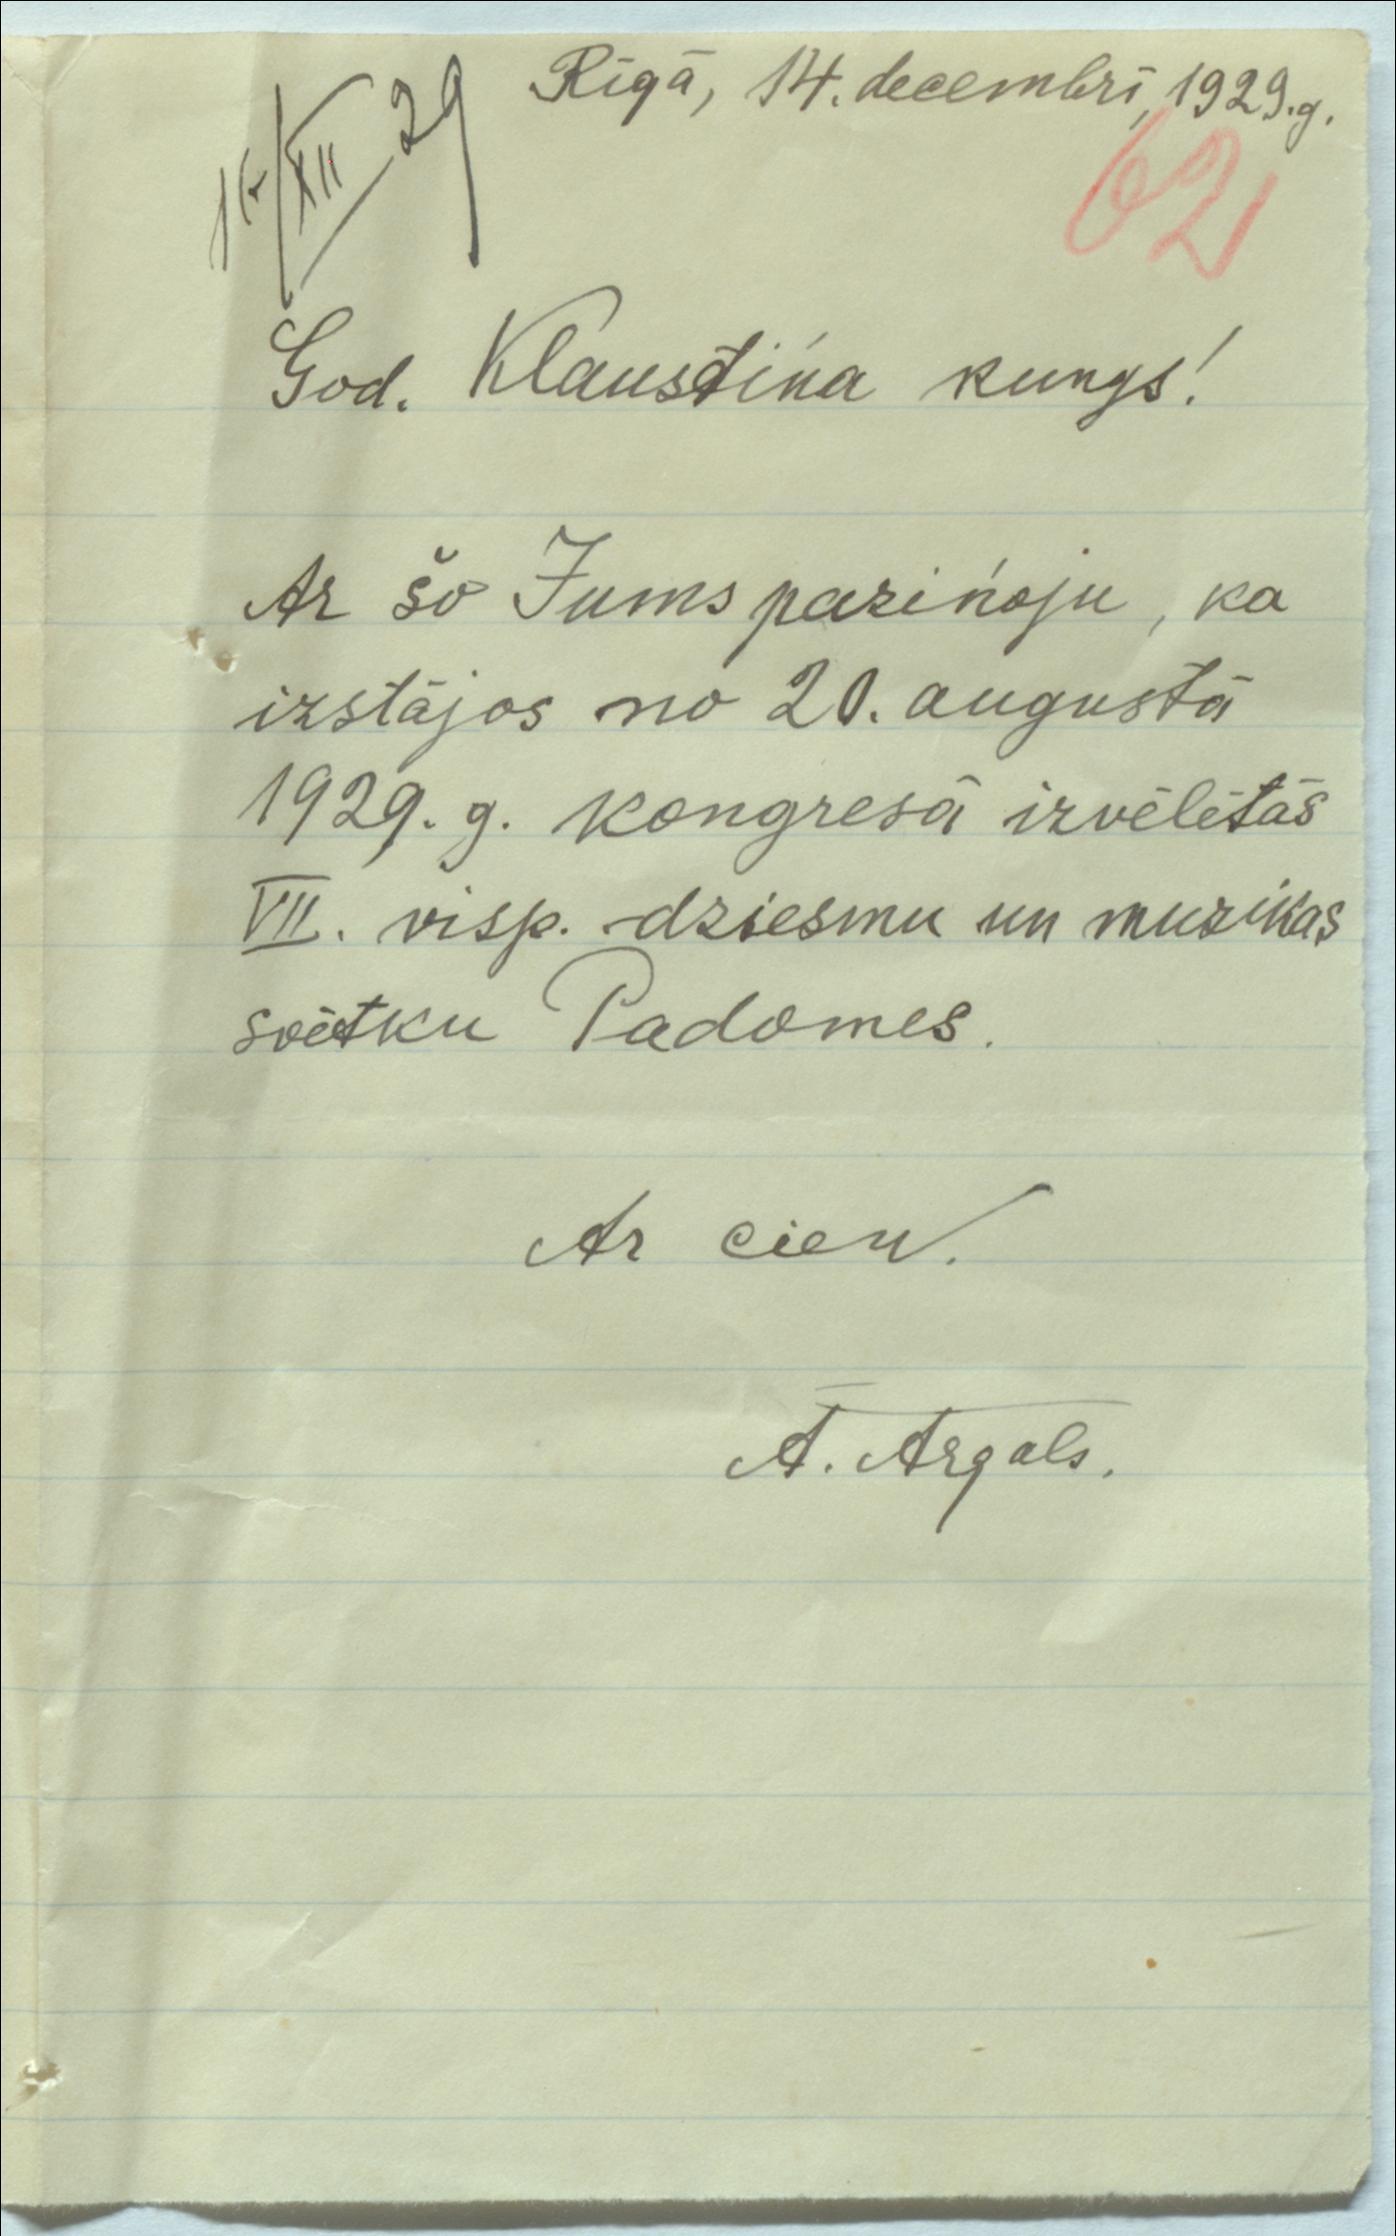 Rīgā, 14. decembrī, 1929.g.
XII 29
62
God. Klaustiņa kungs!
Ar šo Jums paziņoju, ka
izstājos no 20. augustā
1929. g. kongresā izvēlētās
VII. visp. dziesmu un muzikas
svētku Padomes.
Ar cien.
A. Argals.